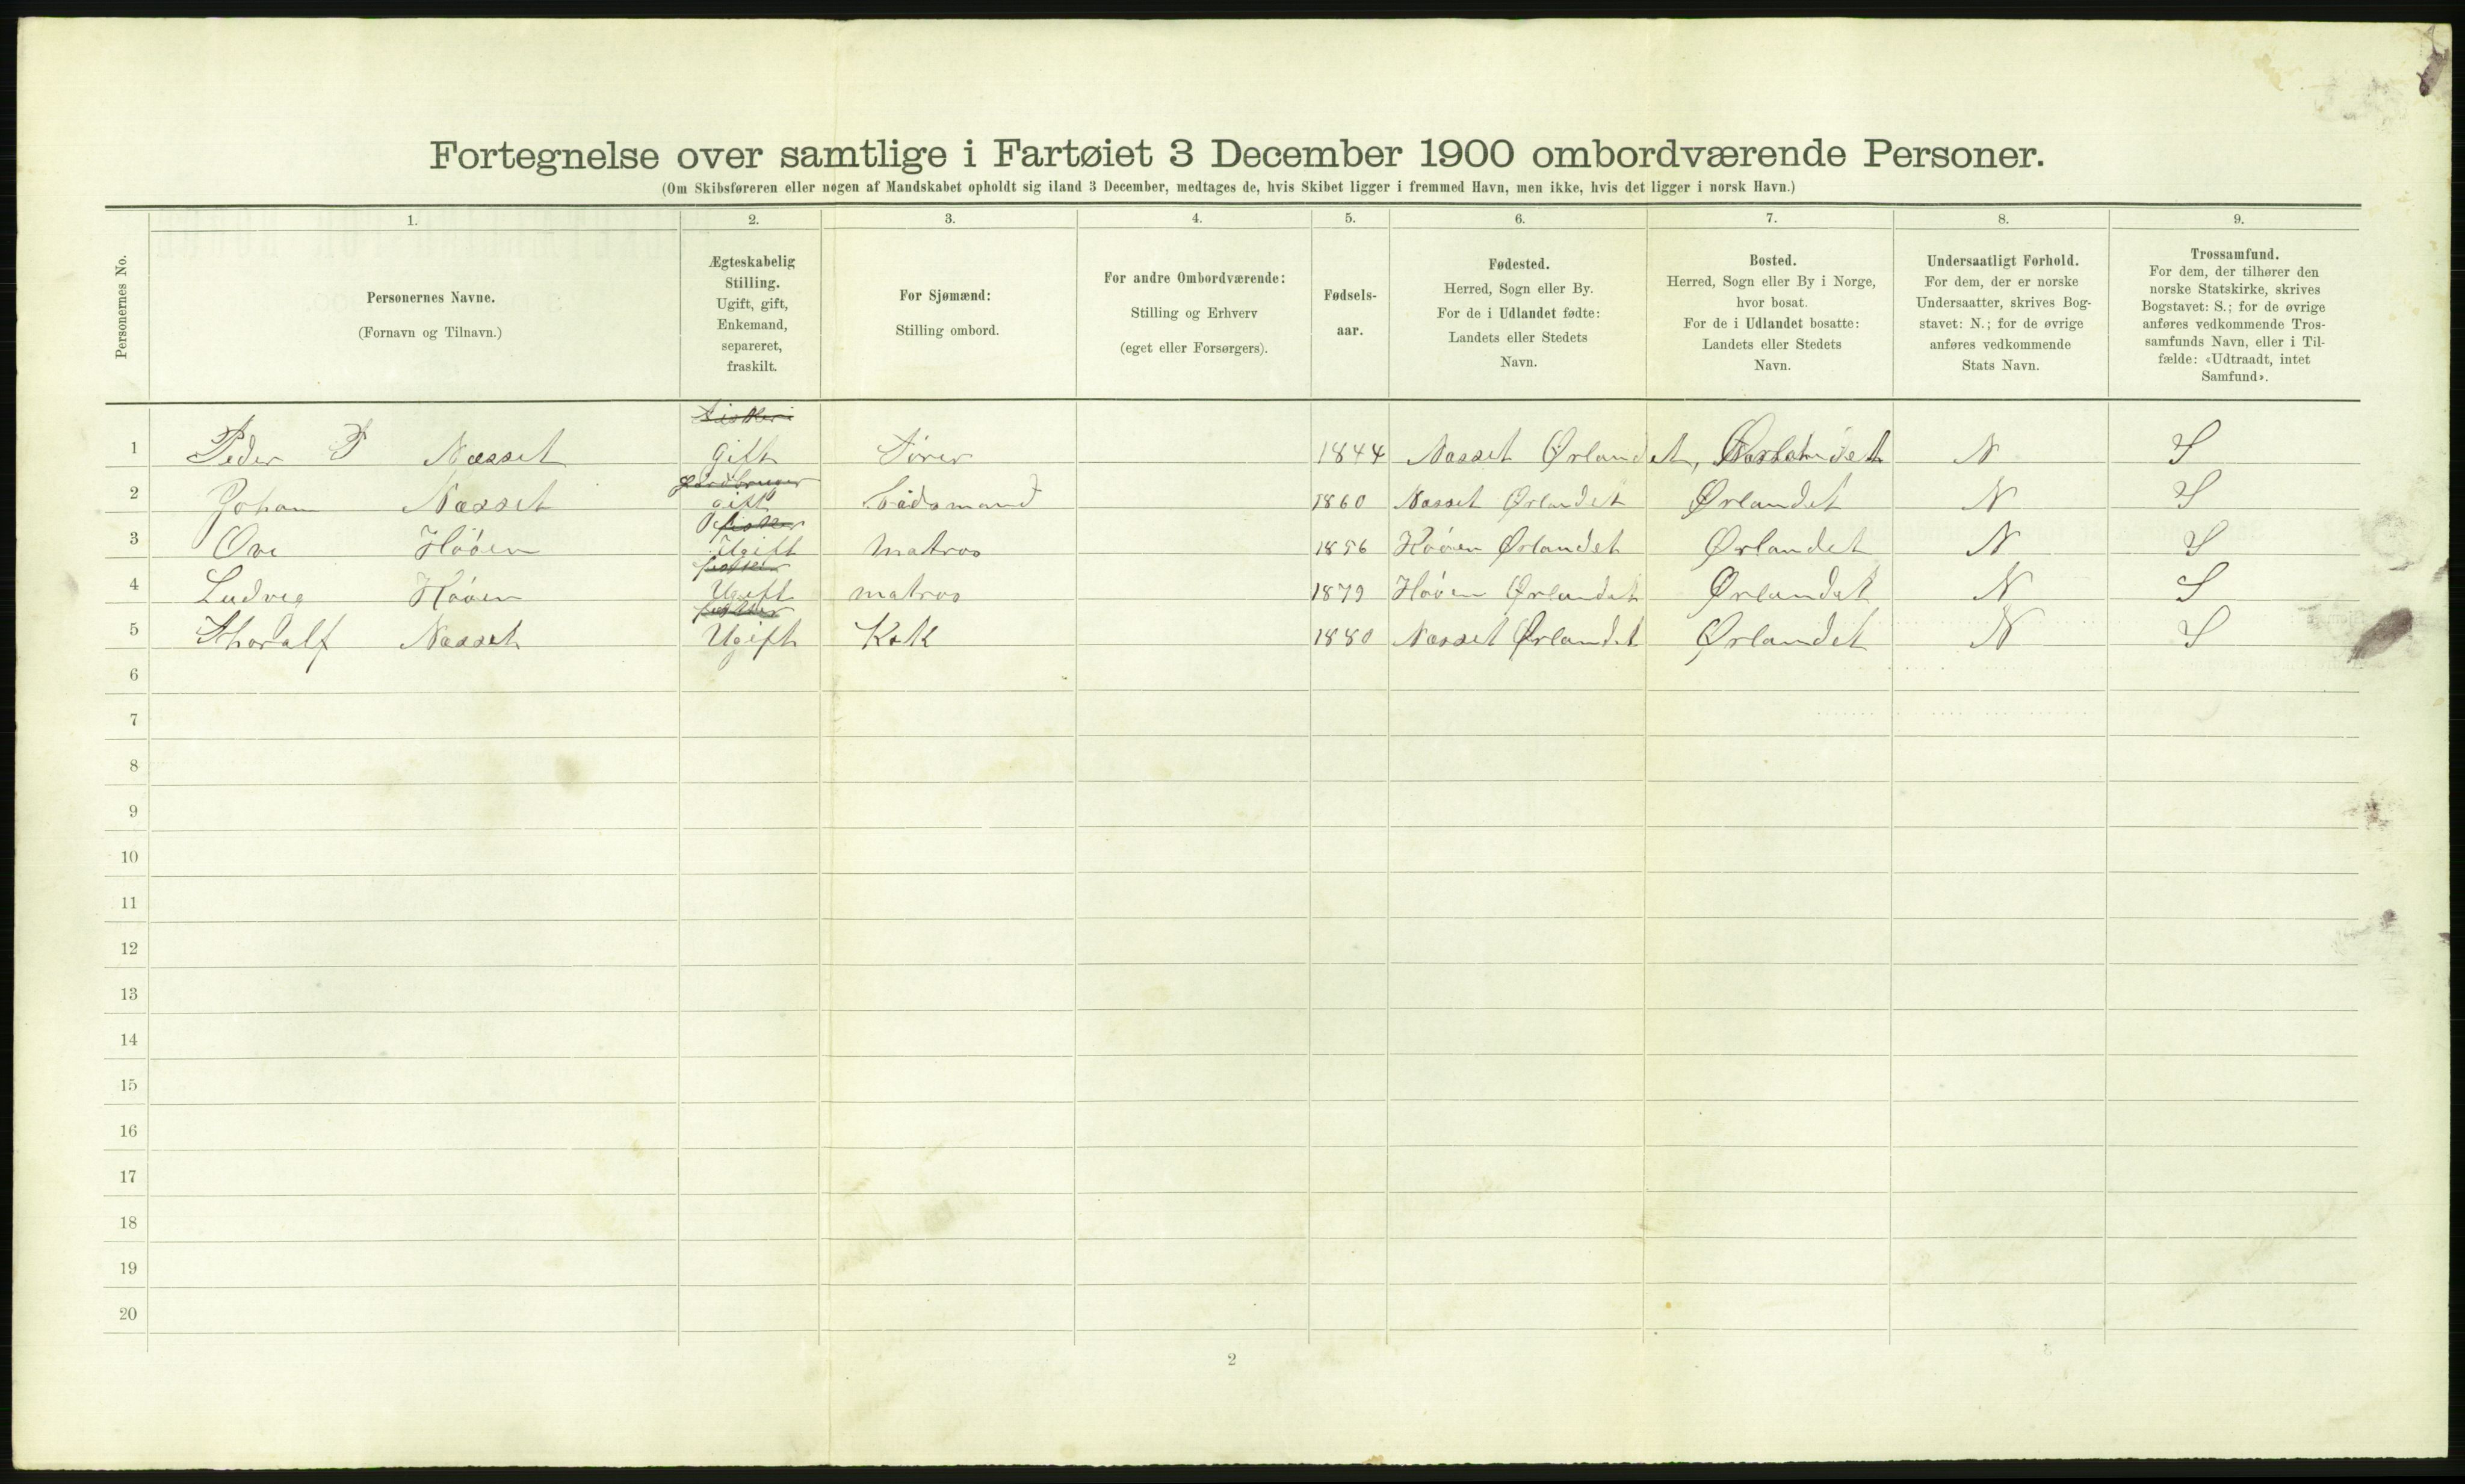 Fortegnelse over samtlige i Fartøiet 3 December 1900 ombordværende Personer.
(Om Skibsføreren eller nogen af Mandskabet opholdt sig iland 3 December, medtages de, hvis Skibet ligger i fremmed Havn, men ikke, hvis det ligger i norsk Havn.)
Personernes No.
1.
Personernes Navne.
(Fornavn og Tilnavn.)
2.
Ægteskabelig
Stilling.
Ugift, gift,
Enkemand,
separeret,
fraskilt.
3.
For Sjømænd:
Stilling ombord.
4.
For andre Ombordværende:
Stilling og Erhverv
(eget eller Forsørgers).
5.
Fødsels-
aar.
6.
Fødested.
Herred, Sogn eller By.
For de i Udlandet fødte:
Landets eller Stedets
Navn.
7.
Bosted.
Herred, Sogn eller By i Norge,
hvor bosat.
For de i Udlandet bosatte:
Landets eller Stedets
Navn.
8.
Undersaatligt Forhold.
For dem, der er norske
Undersaatter, skrives Bog-
stavet: N.; for de øvrige
anføres vedkommende
Stats Navn.
9.
Trossamfund.
For dem, der tilhører den
norske Statskirke, skrives
Bogstavet: S.; for de øvrige
anføres vedkommende Tros-
samfunds Navn, eller i Til-
fælde: «Udtraadt, intet
Samfund».
1 Peder P Næsset gift Fører 1844 Næsset Ørlandet, Ørlandet N S
gardbruger
2 Johan Næsset gift Bådsmand 1860 Næsset Ørlandet Ørlandet N S
fisker
3 Ove Høøen Ugift Matros 1856 Høøen Ørlandet Ørlandet N S
fisker
4 Ludvig Høøen Ugift matros 1879 Høøen Ørlandet Ørlandet N S
fisker
5 Thoralf Næsset Ugift Kok 1880 Næsset Ørlandet Ørlandet N S
6
7
8
9
10
11
12
13
14
15
16
17
18
19
20
2